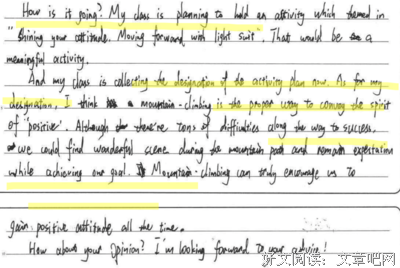 How is it going? My class is planning to hold an activity which themed in
"Shining your attitude. Moving forward with light suit". That would be a
meaningful activity.
And my class is collecting the designation of the activity plan now. As for my
designation, I think a mountain-climbing is the proper way to convey the spirit
of positive. Although there're tons of difficulties along the way to success,
we could find wonderful scene during the mountain path and remain expectation
while achieving our goal. Mountain-climbing can truly encourage us to
gain positive attitude all the time.
How about your opinion? I'm looking forward to your
好文阅读：文章吧网